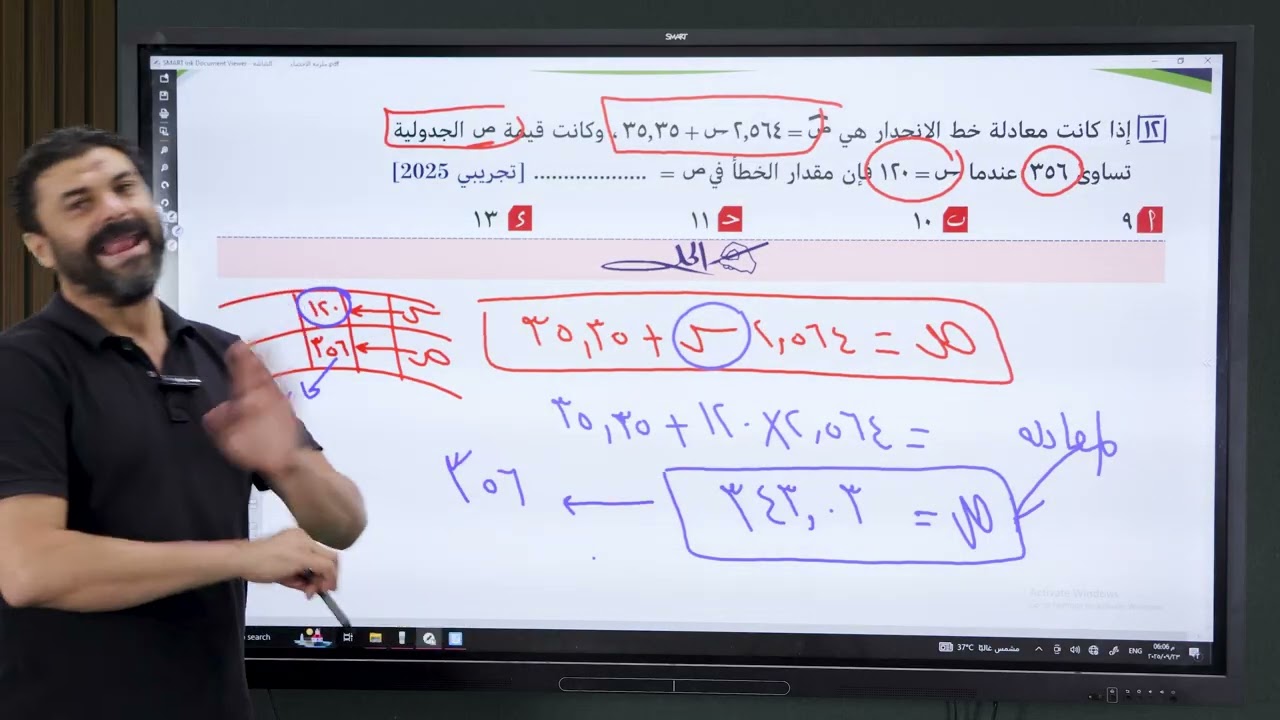 SMART
SMART Ink Document Viewer - الشاشه ملزمة الاحصاء.pdf
١٢ إذا كانت معادلة خط الانحدار هي صَ = ٢,٥٦٤ س + ٣٥,٣٥ ، وكانت قيمة ص الجدولية
تساوى ٣٥٦ عندما س = ١٢٠ فإن مقدار الخطأ في ص = ................... [تجريبي 2025]
أ ٩ ب ١٠ ج ١١ د ١٣
الحل
س ١٢٠
ص ٣٥٦
صَ = ٢,٥٦٤ س + ٣٥,٣٥
= ٢,٥٦٤ × ١٢٠ + ٣٥,٣٥
معادله
صَ = ٣٤٣,٠٣ ← ٣٥٦
Activate Windows
search
37°C مشمس غالبًا ENG 06:06 م
٢٠٢٥/٠٩/٢٣